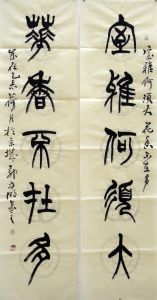 室雅何須大花香不在多
室雅何須大
華香不在多
歲在乙未荷月於京